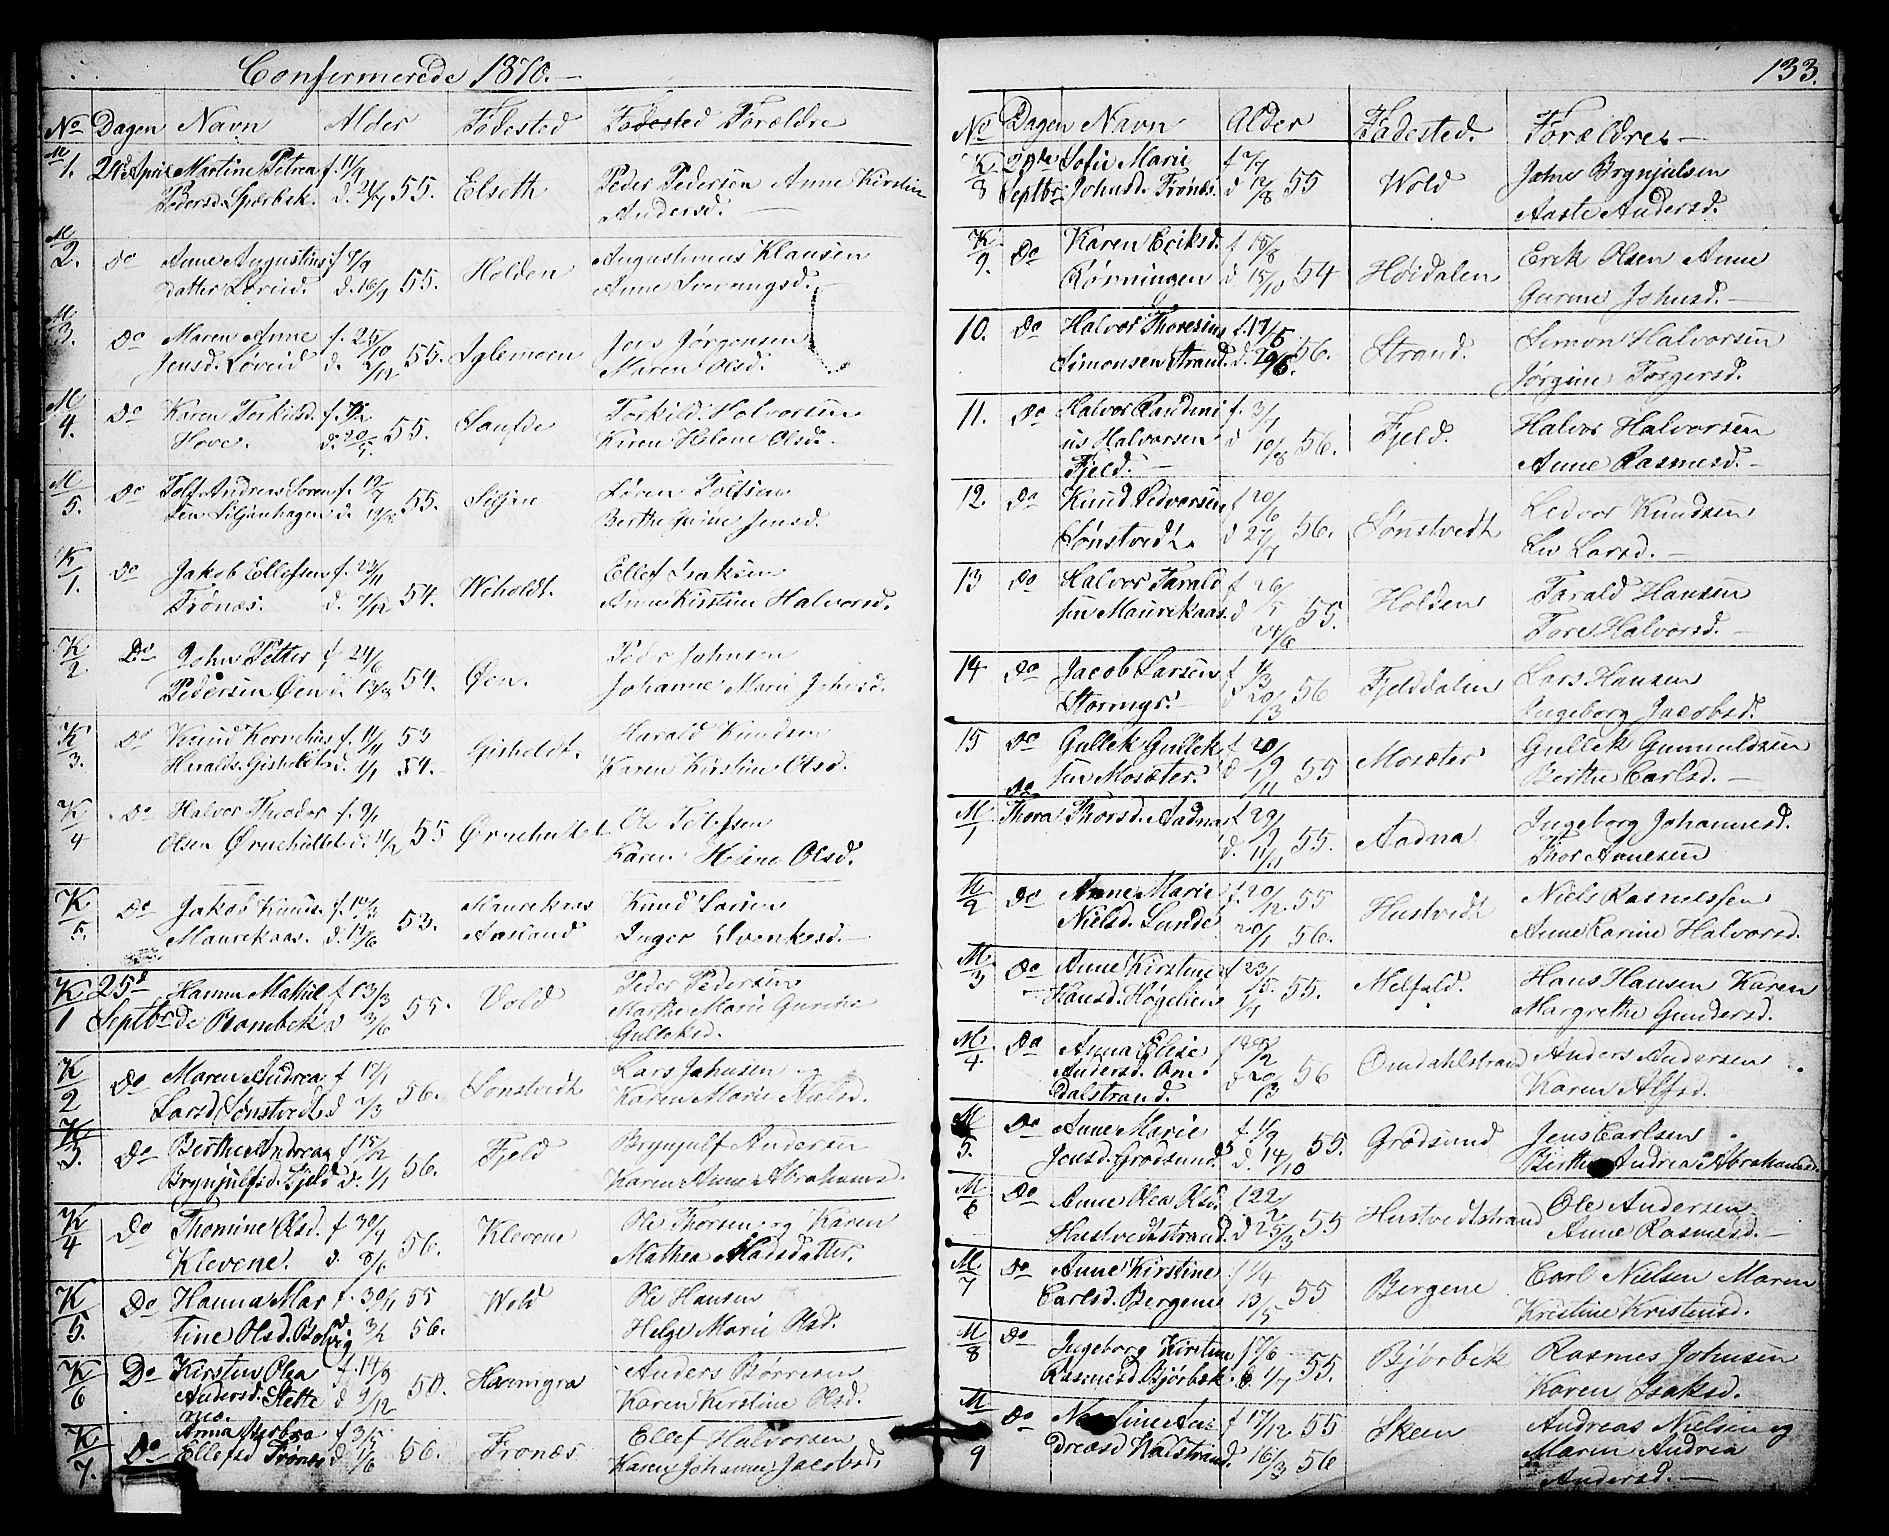 Confirmerede 1870.-
No Dagen Navn Alder Fødested Fødested Forældre
M 1. 24de April Martine Petrea f. 11/4 Peder Pedersen Anne Kirstin
Pedersd. d. 21/7 55. Elseth Andersd.
M 2. do Anne Augustinus f. 8/9 Augustinus Klausen
datter Løveid. d. 16/9 55. Holden Anne Svennungsd.
M 3. Do Maren Anne f. 25/10 Jens Jørgensen
Jensd. Løveid d. 2/12 55. Maren Olsd.
M 4. Do Karen Torkilsd. f. Torkild Halvorsen
Hove. d. 20/5 55. Saufde Karen Helene Olsd.
M 5. Do Tolf Andreas Søren f. 19/7 Søren Tolfsen
sen Siljanhagen d. 55. Siljan Berthe Jensd.
K 1. Do Jakob Ellefsen f. 23/11 Ellef Isaksen
Trönæs. d. 1/12 54. Weholdt. Anne Kirstine Halvorsd.
K 2. Do John Petter f 24/6 Peder Johnsen
Pedersen Øen d. 13/8 54. Øen. Johanne Marie Johnsd.
K 3. Do Knud Kornelius f. 11/11 53 Harald Knudsen
Haralds. Gisholdt d. 1/1 54. Gisholdt. Karen Kirstine Olsd.
K 4 Do Halvor Theodor f. 9/1 Ole Tolefsen
Olsen Ørnehultet d. 11/2 55 Ørnehultet Karen Helene Olsd.
K 5. Do Jakob Knuds. f. 10/3 Maurekaas Knud Larsen
Maurekaas. d. 12/6 53. Aasland Inger Svenkesd.
K 1 25d Hanna Matil f 13/3 Peder Pedersen
Septbr de Rambek d 3/6 55. Vold Marthe Marie Gurine
Gulleksd.
K 2 Do Maren Andrea f 17/1 Lars Johnsen og
Larsd. Sønstvedt d 2/3 56. Sønstvedt Karen Marie Nielsd.
K 3. Do Berthe Andrea f 15/12 Brynjulf Andersen
Brynjulfsd. Fjeld d. 1/1 56. Fjeld Karen Anne Abrahamsd.
K 4 Do Thomine Olsd. f 30/4 Ole Thorsen og Karen
Klevene. d. 8/6 56. Klevene Mathea Madsdatter.
K 5. Do Hanna Mar f. 30/11 55 Wold Ole Hansen
tine Olsd. Bolvig d 3/2 56. Helge Marie Olsd.
K 6 Do Kirsten Olea f. 14/9 Anders Børresen
Andersd. Slette d 9/12 50. Karen Kirstine Olsd.
næ.
K 7. Do Anna f 3/5 Ellef Halvorsen
Ellefsd Trönæs d 17/6 56. Tronæs Karen Johanne Jacobsd.
133.
No Dagen Navn Alder Fødested Forældre -
K 8 29de Sofie Marie f 7/7 Johne Brynjulsen
Septbr Johnsd. Trönæs. d 12/8 55 Wold Aaste Andersd.
K 9. Do Karen Eriksd. f 15/8 Erik Olsen Anne
Rønningen d 15/10 54 Høidalen Gurine Johnsd. -
10. Do Halvor Thoresius f. 17/5 Simon Halvorsen
Simonsen Strand. d. 29/6 56. Strand. Jørgine Torgersd.
11. Do Halvor Randini f. 3/7 Halvor Halvorsen
us Halvorsen d 10/8 56. Fjeld. Anne Rasmusd. -
Fjeld. -
12. Do Knud Ledvorsen f 20/6 Ledvor Knudsen
Sønstvedt. d 27/7 56. Sønstvedt Liv Larsd. -
13 do Halvor Tarald f 26/5 Tarald Hansen
sen Maurekaas. d 24/6 55. Holden Tore Halvorsd. -
14 Do Jacob Larsen f 1/3 Lars Hansen
Stormyr. d 20/3 56 Fjelddalen Ingeborg Jacobsd.
15 Do Gullek Gullek f 20/9 Gullek Gunnuldsen
sen Mosæter. d 1/11 55 Mosæter Berthe Carlsd. -
M 1 Do Thora Thorsd. Aadna f 29/9 Ingeborg Johannesd.
d. 11/11 55. Aadna Thor Arnesen
M 2 Do Anne Marie f. 20/12 55 Niels Rasmussen
Nielsd. Lunde 20/1 56. Hustvedt Anne Carine Halvorsd.
M 3 Do Anne Kirstine f 23/5 Hans Hansen Karen
Hansd. Høgelien 1/7 55. Melfald. Margrethe Gundersd.
M 4 Do Anna Elise Anders Andersen
Andersd. Om d 20/3 56 Omdahlstrand Karen Alfsd.
dalstrand.
M 5. Do Anne Marie f 1/9 Jens Carlsen
Jensd. Grodsund d. 14/10 55. Grødsund Berthe Andrea Abrahamsd.
M 6 Do Anne Olea Olsd. f 22/2 Ole Andersen
Hustvedtstrand. d 25/3 55 Hustvedtstrand Anne Rasmusd. -
M 7 Do Anne Kirstine f 1/4 Carl Nielsen Maren
Carlsd. Bergene 13/5 55 Bergene Kristine Kristensd.
M 8 Do Ingeborg Kirstine f 17/6 Rasmus Johnsen
Rasmusd Bjørbæk. d. 1/7 55. Bjørbek Karen Isaksd.
M 9 Do An f 17/12 55 Skeen Andreas Nielsen og
dreasd Waldstrand. d 16/3 56 Maren Andrea
Andersd. -